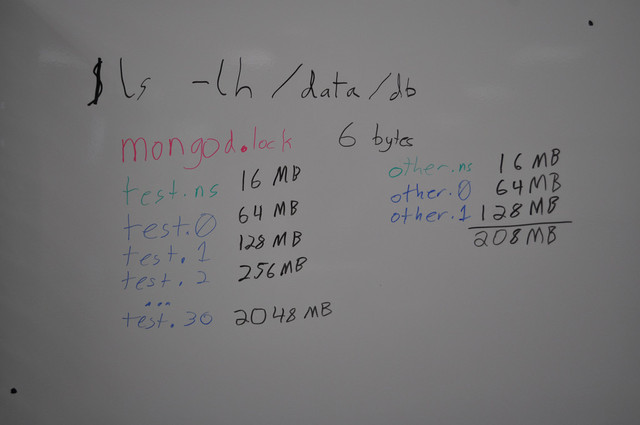 $ls -lh /data/db
mongod.lock 6 bytes
test.ns 16 MB
test.0 64 MB
test.1 128 MB
test.2 256 MB
...
test.30 2048 MB
other.ns 16 MB
other.0 64 MB
other.1 128 MB
208 MB